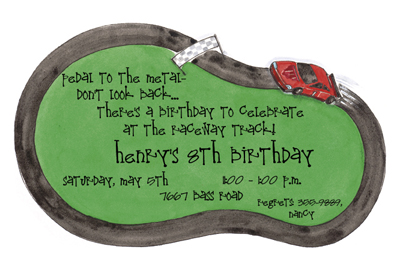 Pedal to the metal-
Don't look back...
There's a birthday to celebrate
at the Raceway Track!
Henry's 8th Birthday
Saturday, May 5th 11:00 - 1:00 p.m.
7667 Bass Road
Regrets: 300-9889,
Nancy